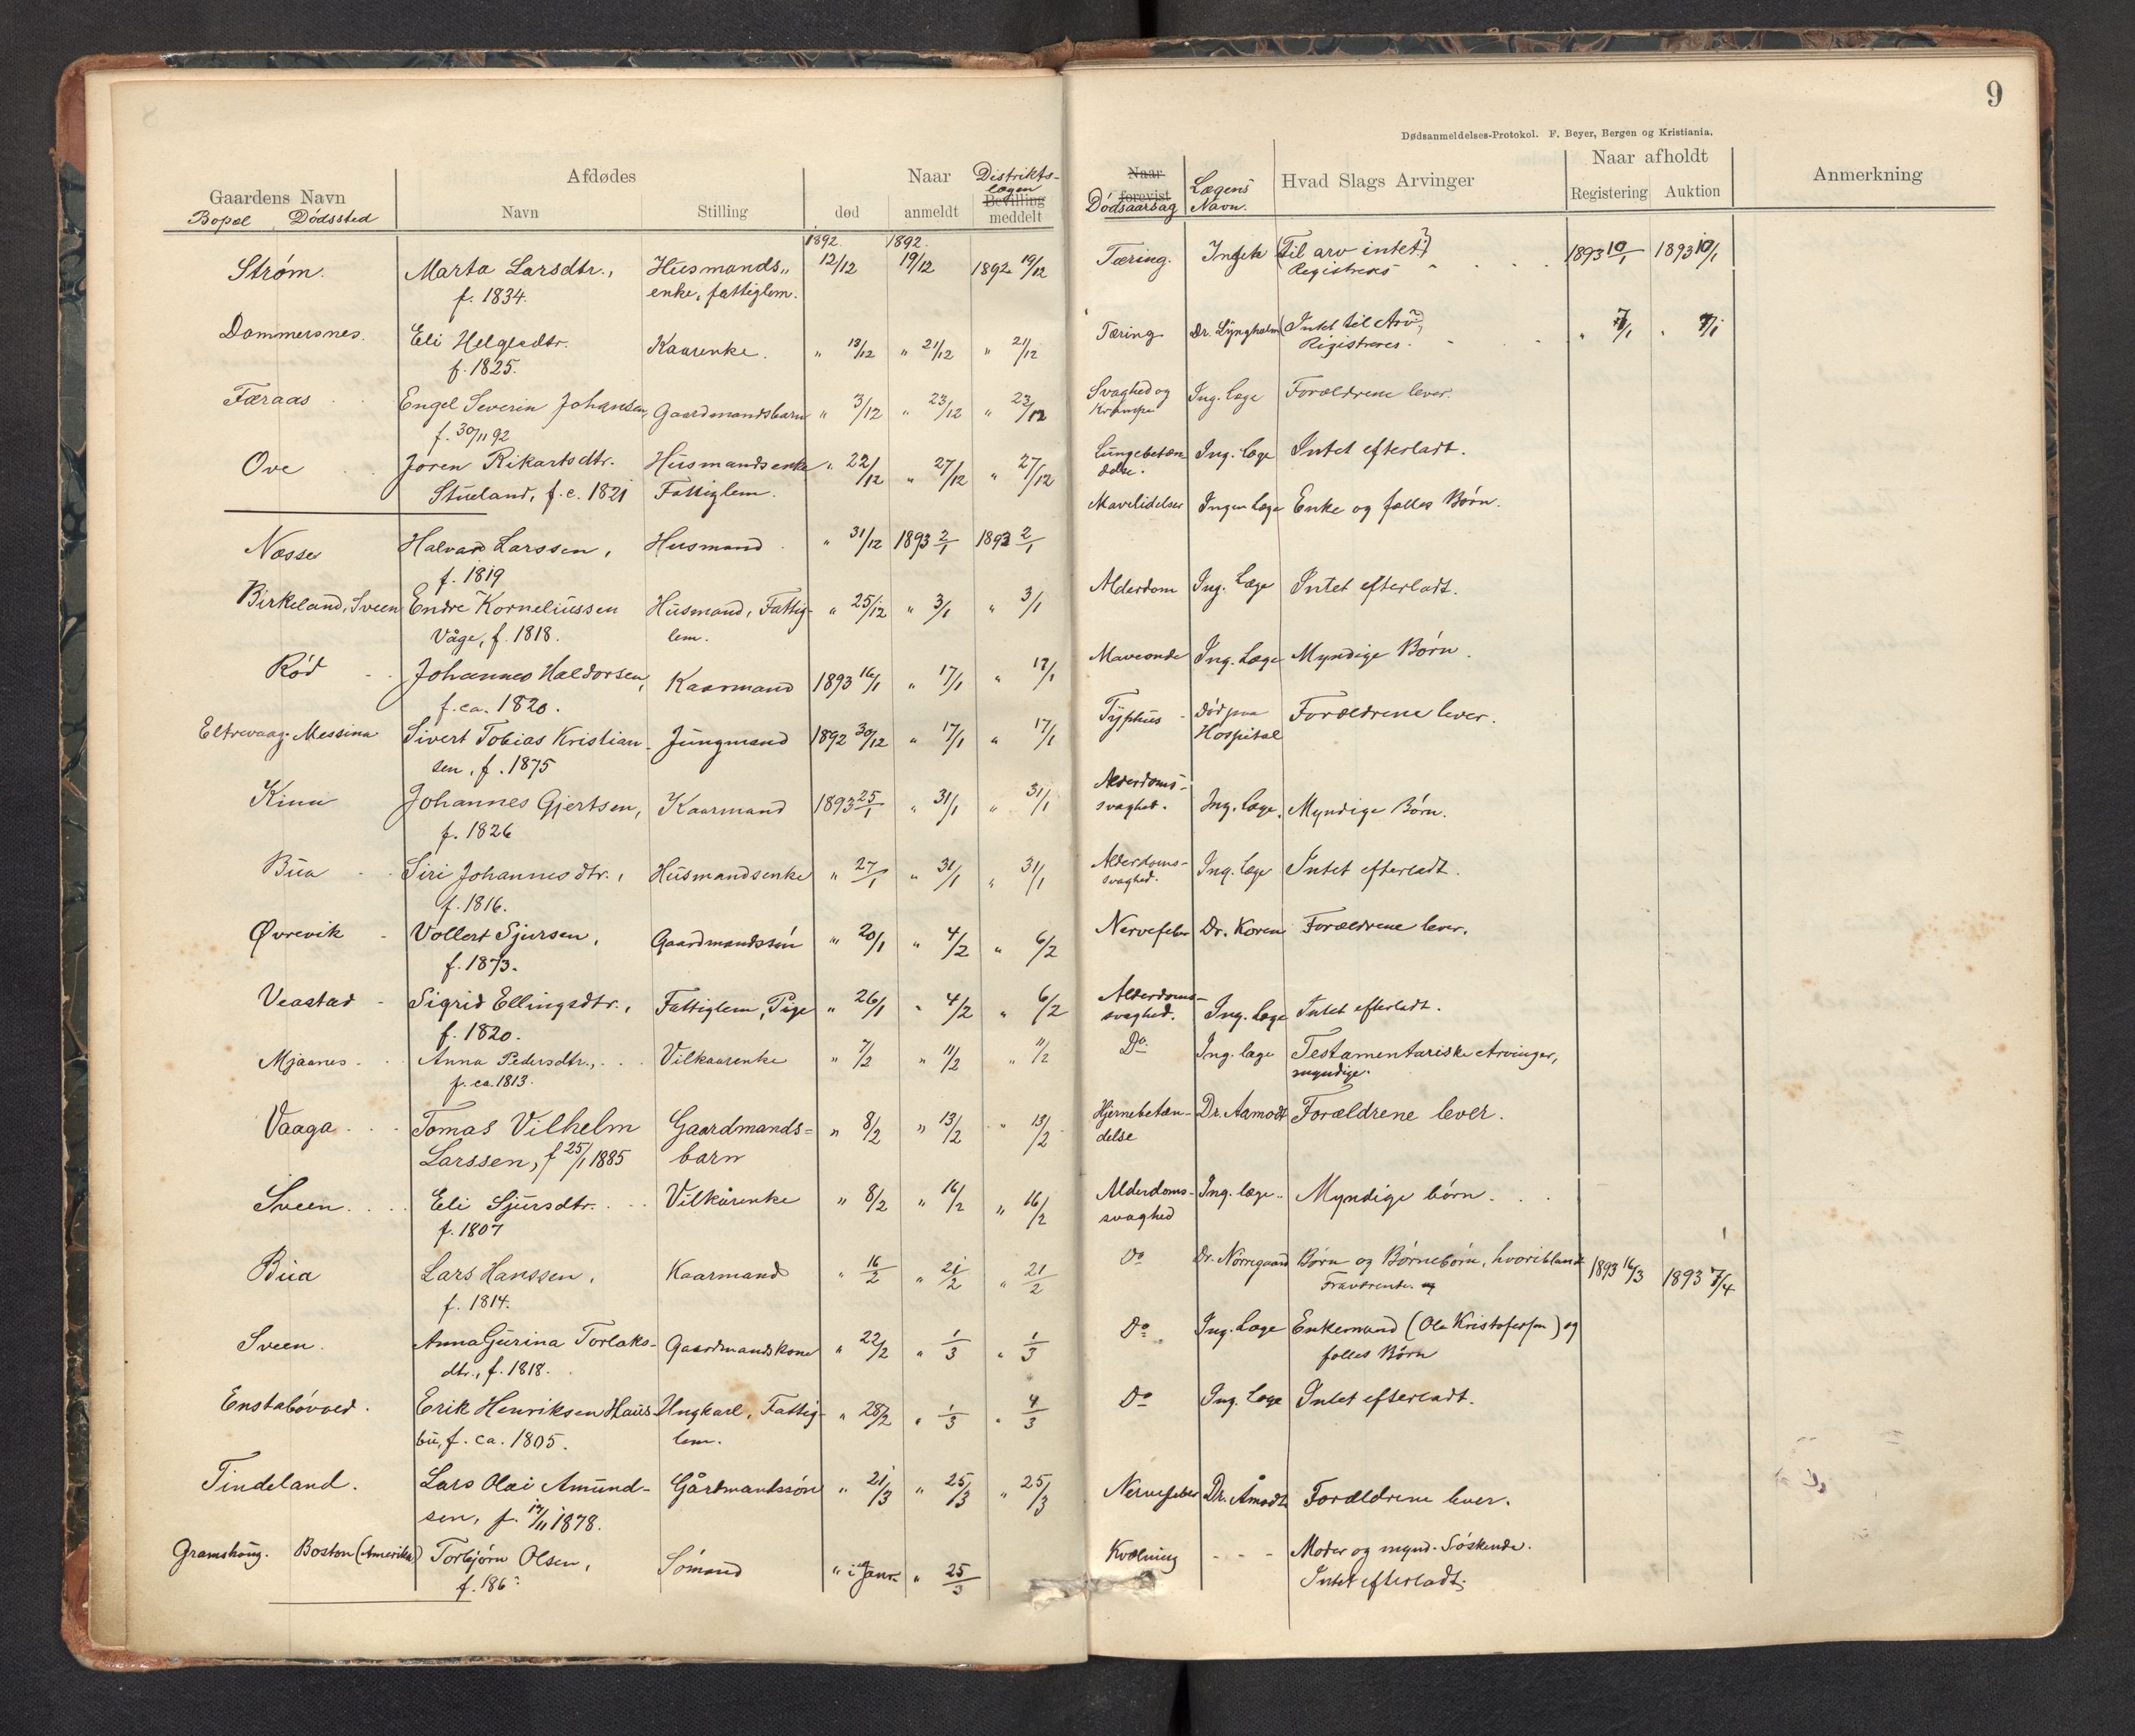 9
Dødsanmeldelses-Protokol. F. Beyer, Bergen og Kristiania.
Gaardens Navn
Bopæl Dödssted
Afdødes
Navn
Stilling
Naar
død
anmeldt
Distrikts-
lægen
Bevilling
meddelt
Naar
forevist
Dödsaarsag
Lægens
Navn.
Hvad Slags Arvinger
Naar afholdt
Registering Auktion
Anmerkning
1892. 1892.
Strøm. Marta Larsdtr., Husmands- 12/12 19/12 1892 19/12 Tæring. (Til arv intet?) 1893 10/1 1893 10/1
f. 1834. enke, fattiglem. Registreres
Dommersnes. Eli Helgesdtr. Kaarenke. " 13/12 " 21/12 " 21/12 Tæring Dr. Lyngholm (Intet til Arv?) " 7/1 " 7/1
f. 1825. Registreres.
Færaas Engel Severin Johansen, Gaardmandsbarn " 3/12 " 23/12 " 23/12 Svaghed og Ing. læge Forældrene lever.
f. 30/11 92 Krampe
Ove Joren Rikartsdtr. Husmandsenke " 22/12 " 27/12 " 27/12 Lungebetæn- Ing. læge Intet efterladt.
Stueland, f. c. 1821 Fattiglem. delse.
Næsse Halvard Larssen, Husmand " 31/12 1893 2/1 1893 2/1 Mavelidelser Ingen læge Enke og fælles Børn.
f. 1819
Birkeland, Sveen Endre Korneliussen Husmand, Fattig- " 25/12 " 3/1 " 3/1 Alderdom Ing. Læge Intet efterladt.
Våge, f. 1818. lem.
Röd Johannes Haldorsen, Kaarmand 1893 16/1 " 17/1 " 17/1 Maveonde Ing. Læge Myndige Börn.
f. ca. 1820.
Eltrevaag. Messina Sivert Tobias Kristian- Jungmand 1892 30/12 " 17/1 " 17/1 Tyfhus Död paa Forældrene lever.
sen, f. 1875 Hospital
Kinn Johannes Gjertsen, Kaarmand 1893 25/1 " 31/1 " 31/1 Alderdoms- Ing. læge. Myndige Börn.
f. 1826 svaghed.
Bua Siri Johannesdtr., Husmandsenke " 27/1 " 31/1 " 31/1 Alderdoms- Ing. læge Intet efterladt.
f. 1816. svaghed.
Øvrevik Vollert Sjursen, Gaardmandssön " 20/1 " 4/2 " 6/2 Nervefeber Dr. Koren Forældrene lever.
f. 1873.
Veastad Sigrid Ellingsdtr., Fattiglem, Pige " 26/1 " 4/2 " 6/2 Alderdoms- Ing. læge Intet efterladt.
f. 1820. svaghed.
Mjaanes Anna Pedersdtr., Vilkaarenke " 7/2 " 11/2 " 11/2 Do. Ing. læge Testamentariske Arvinger,
f. ca. 1813. myndige.
Vaaga Tomas Vilhelm Gaardmands= " 8/2 " 13/2 " 13/2 Hjernebetæn- Dr. Aamodt Forældrene lever.
Larssen, f 25/1 1885 barn delse
Sveen Eli Sjursdtr. Vilkårenke " 8/2 " 16/2 " 16/2 Alderdoms- Ing. læge. Myndige börn.
f. 1807 svaghed
Bua Lars Hanssen, Kaarmand " 16/2 " 21/2 " 21/2 Do Dr. Nörregaard Börn og Börnebörn, hvoriblandt 1893 16/3 1893 7/4
f. 1814. Fraværende.
Sveen. Anna Gurina Torlaks- Gaardmandskone " 22/2 " 1/3 " 1/3 Do. Ing. Læge Enkemand (Ole Kristofersen) og
dtr., f. 1818. fælles Börn
Enstabövoed. Erik Henriksen Haus- Ungkarl, Fattig- " 28/2 " 1/3 " 4/3 Do Ing. Læge Intet efterladt.
bu, f. ca. 1805. lem.
Tindeland. Lars Olai Amund- Gårdmandssön " 21/3 " 25/3 " 25/3 Nervefeber Dr. Åmodt Forældrene lever.
sen, f. 17/11 1878.
Gramshaug. Boston (Amerika) Torbjørn Olsen, Sömand " i Janr. " 25/3 Kvælning Moder og mynd. Söskende.
f. 186 Intet efterladt.